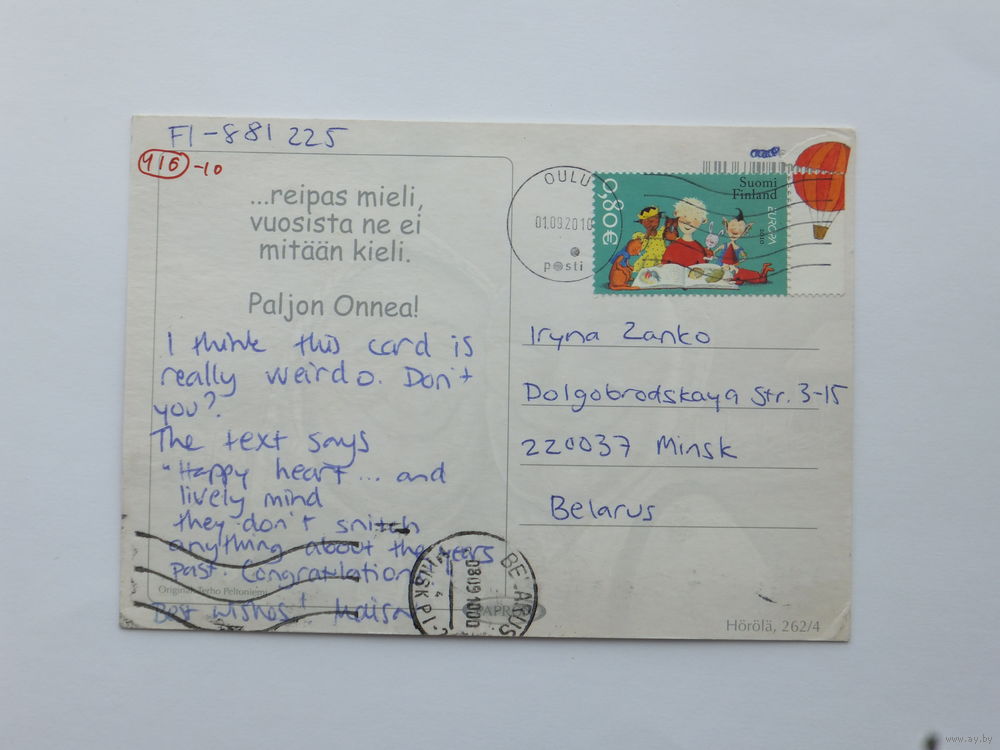 FI-881 225
416 -10
...reipas mieli,
vuosista ne ei
mitään kieli.
Paljon Onnea!
I think this card is
really weirdo. Don't
you?
The text says
"Happy heart... and
lively mind
they don't snitch
anything about the years
past. Congratulation
Original: Terho Peltoniemi
Best wishes! Maisa
OULU
01.09.2010
posti
0,80€
Suomi
Finland
EUROPA
2010
Iryna Zanko
Dolgobrodskaya Str. 3-15
220037 Minsk
Belarus
BELARUS
MINSK PI
080910
PAPR
Hörölä, 262/4
www.ay.by